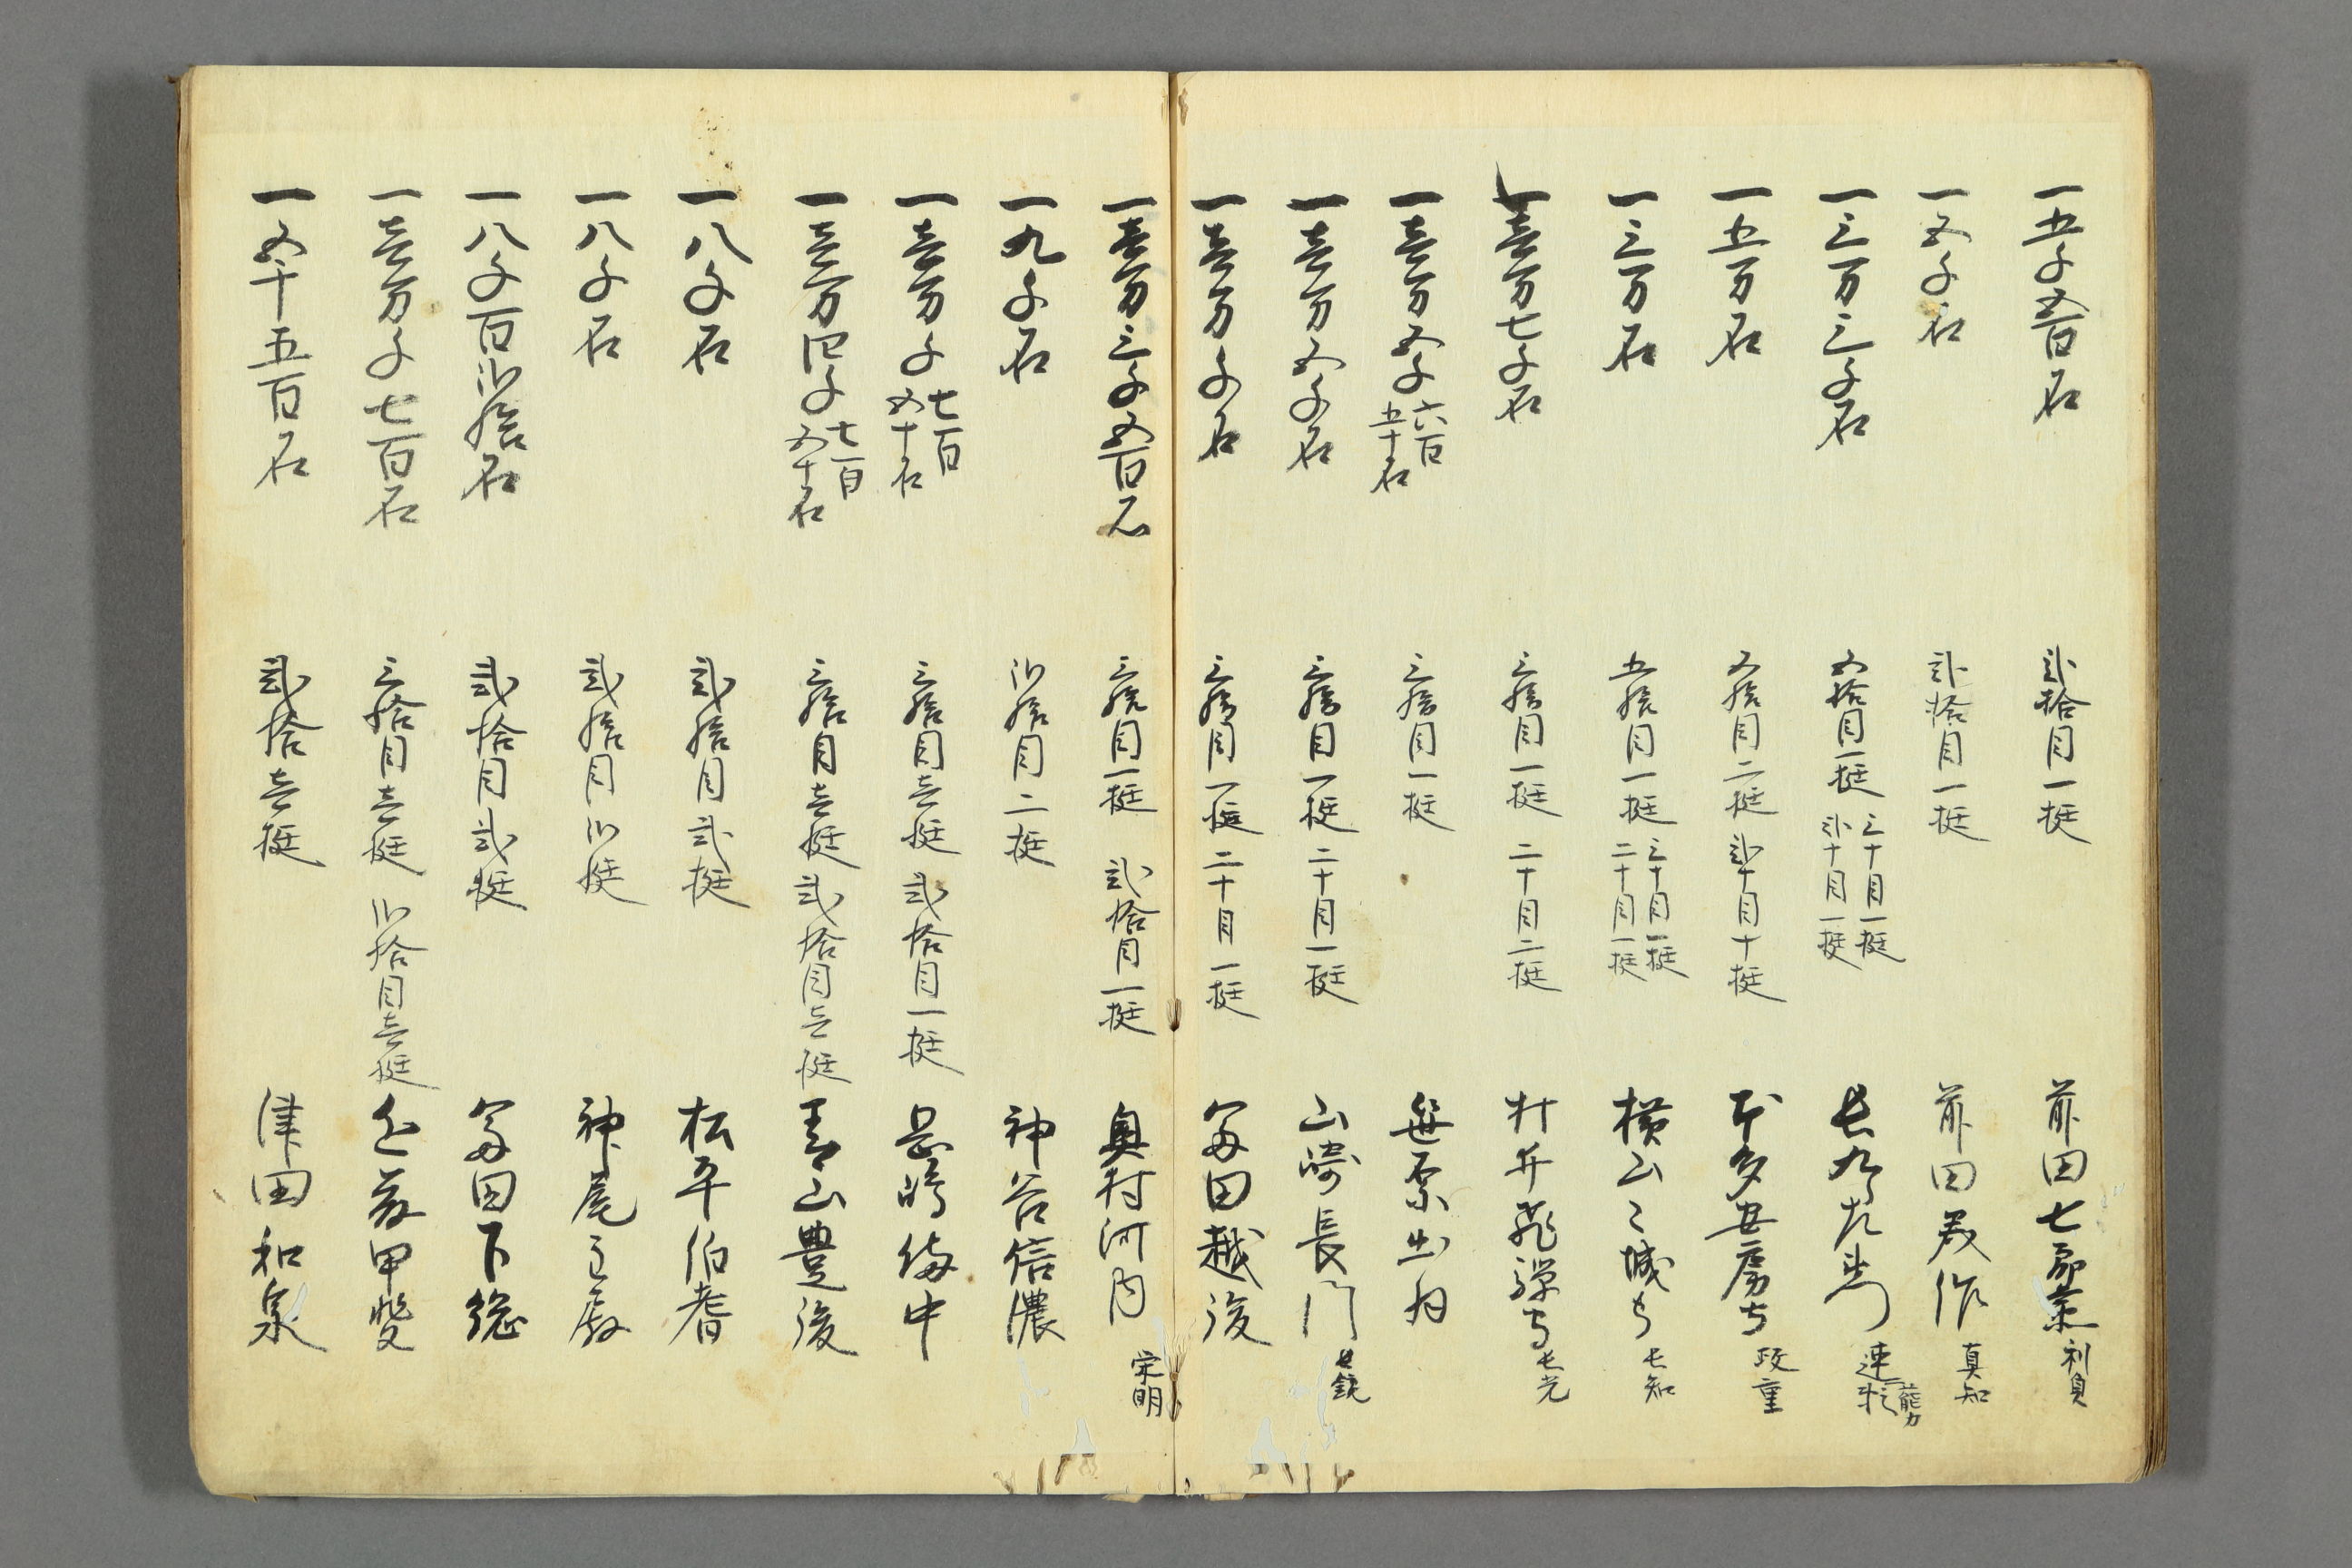 一五千五百石 弐拾目一挺 前田七郎兵衛 利貞
一五千石 弐拾目一挺 前田美作 直知
一三万三千石 五拾目一挺 三十目一挺 弐十目一挺 長九郎左衛門 連龍
一五万石 五拾目二挺 弐十目十挺 本多安房守 政重
一三万石 五拾目一挺 三十目一挺 二十目一挺 横山山城守 長知
一壱万七千石 三拾目一挺 二十目二挺 村井飛騨守 長光
一壱万五千六百五十石 三拾目一挺 笹原出羽
一壱万五千石 三拾目一挺 二十目一挺 山崎長門 長鏡
一壱万千石 三拾目一挺 二十目一挺 富田越後
一壱万三千五百石 三拾目一挺 弐拾目一挺 奥村河内 栄明
一九千石 弐拾目二挺 神谷信濃
一壱万千七百五十石 三拾目壱挺 弐拾目一挺 岡嶋備中
一壱万四千七百五十石 三拾目壱挺 弐拾目壱挺 青山豊後
一八千石 弐拾目弐挺 松平伯耆
一八千石 弐拾目弐挺 神尾主殿
一八千百弐拾石 弐拾目弐挺 富田下総
一壱万千七百石 三拾目壱挺 弐拾目壱挺 近藤甲斐
一五千五百石 弐拾壱挺 津田和泉